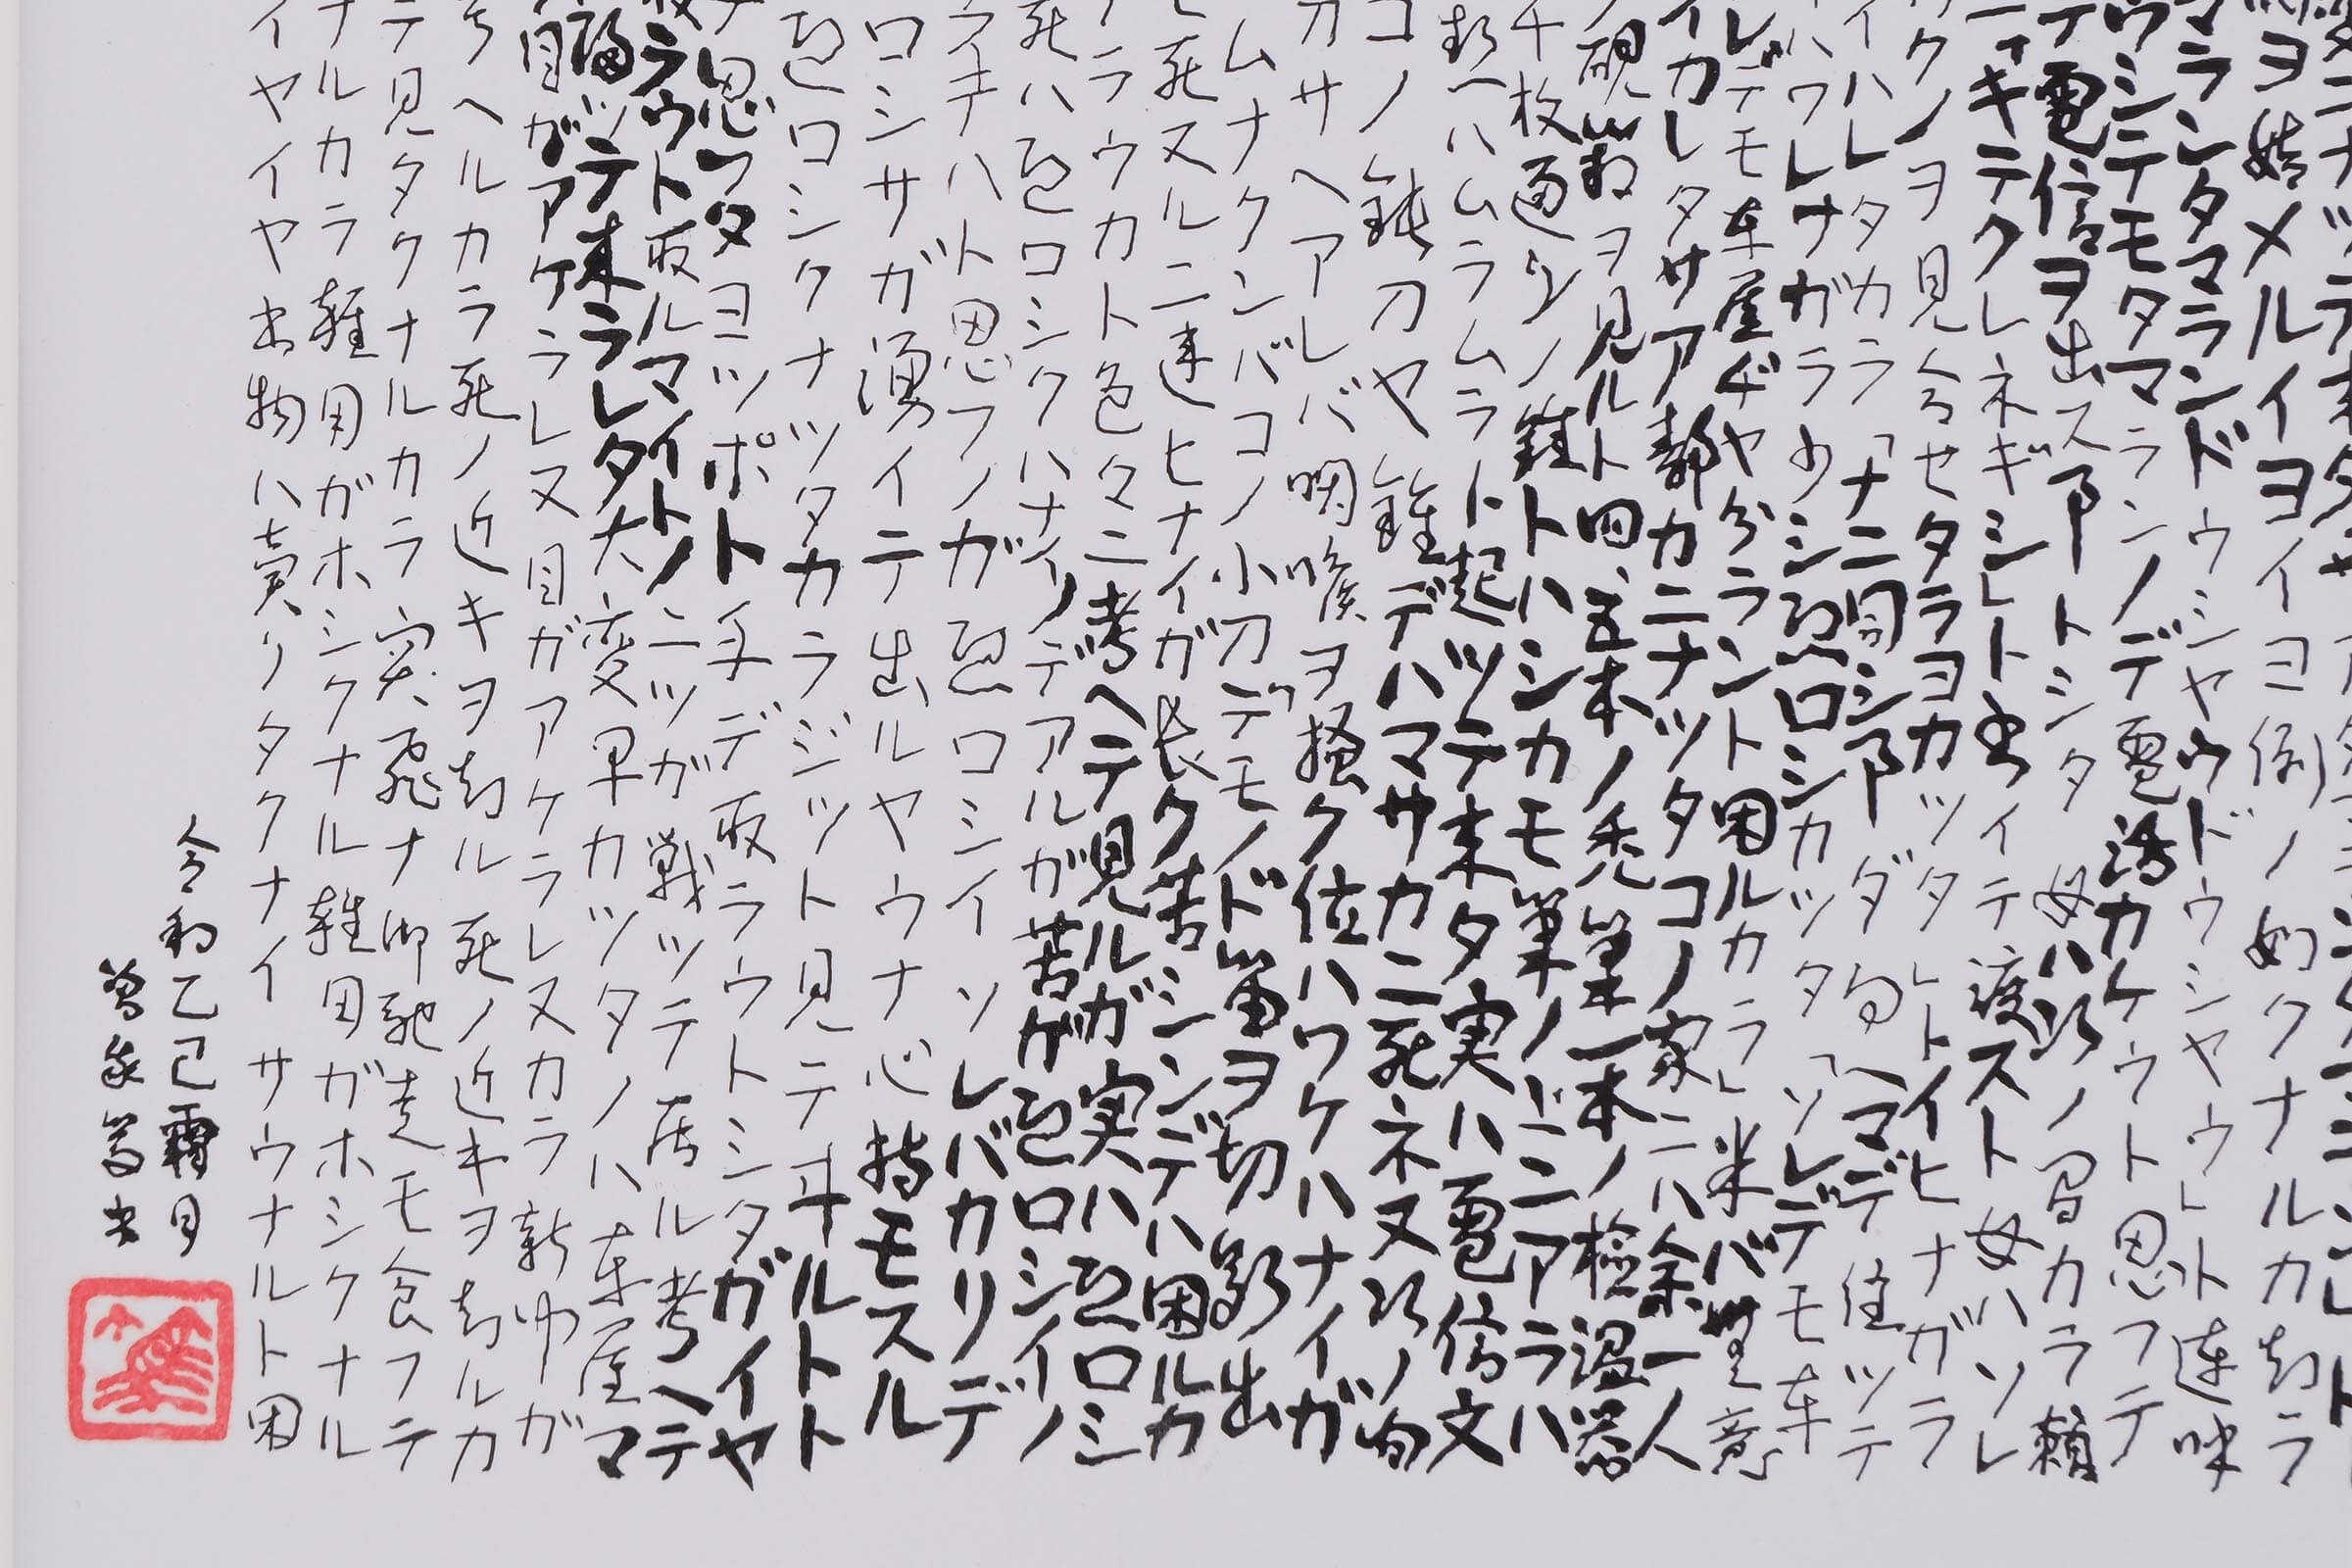 ヲ始メルイヨイヨ例ノ如クナルカ知ラ
マランタマランドウシヤウドウシヤウ」ト連呼
ウシテモタマランノデ電話カケウト思フテ
テ電信ヲ出ス事トシタ 母ハ次ノ間カラ頼
キテクレネギシ」ト書イテ渡スト母ハソレ
クノヲ見合セタラヨカツタ」トイヒナガラ
イハレタカラ「ナニ同シ事ダ向ヘマデ往ツテ
ハワレナガラ少シ恐ロシカツタ「ソレデモ車
レデモ車屋ヂヤ分ラント困ルカラ」
イカレタサア静カニナツタコノ家ニハ余一人
硯箱ヲ見ルト四、五本ノ禿筆一本ノ検温器
千枚通シノ錐トハシカモ筆ノ上ニアラハ
ハムラムラト起ツテ来タ 実ハ電信文
コノ鈍刀ヤ錐デハマサカニ死ネヌ次ノ間
刀サヘアレバ咽喉ヲ掻ク位ハワケハナイガ
ムナクンバコノ小刀デモノド笛ヲ切断出
死ヌルニ違ヒナイガ長ク苦シンデハ困ルカ
アラウカト色々ニ考ヘテ見ルガ実ハ恐ロシ
死ハ恐ロシクハナイノデアルガ苦ガ恐ロシイノ
キハト思フノガ恐ロシイソレバカリデ
ロシサガ湧イテ出ルヤウナ心持モスル
恐ロシクナツタカラジツト見テヰルトト
思フタヨツポト手デ取ラウトシタガイヤ
ラウト取ルマイトノ二ツガ戦ツテ居ル考ヘテ
帰ツテ来ラレタ大変早カツタノハ車屋マ
目ガアケラレヌ目ガアケラレヌカラ新聞ガ
考ヘルカラ死ノ近キヲ知ル死ノ近キヲ知ルカ
テ見タクナルカラ突飛ナ御馳走モ食フテ
ナルカラ雑用ガホシクナル雑用ガホシクナル
イヤイヤ書物ハ売リタクナイサウナルト困
令和乙巳霜月